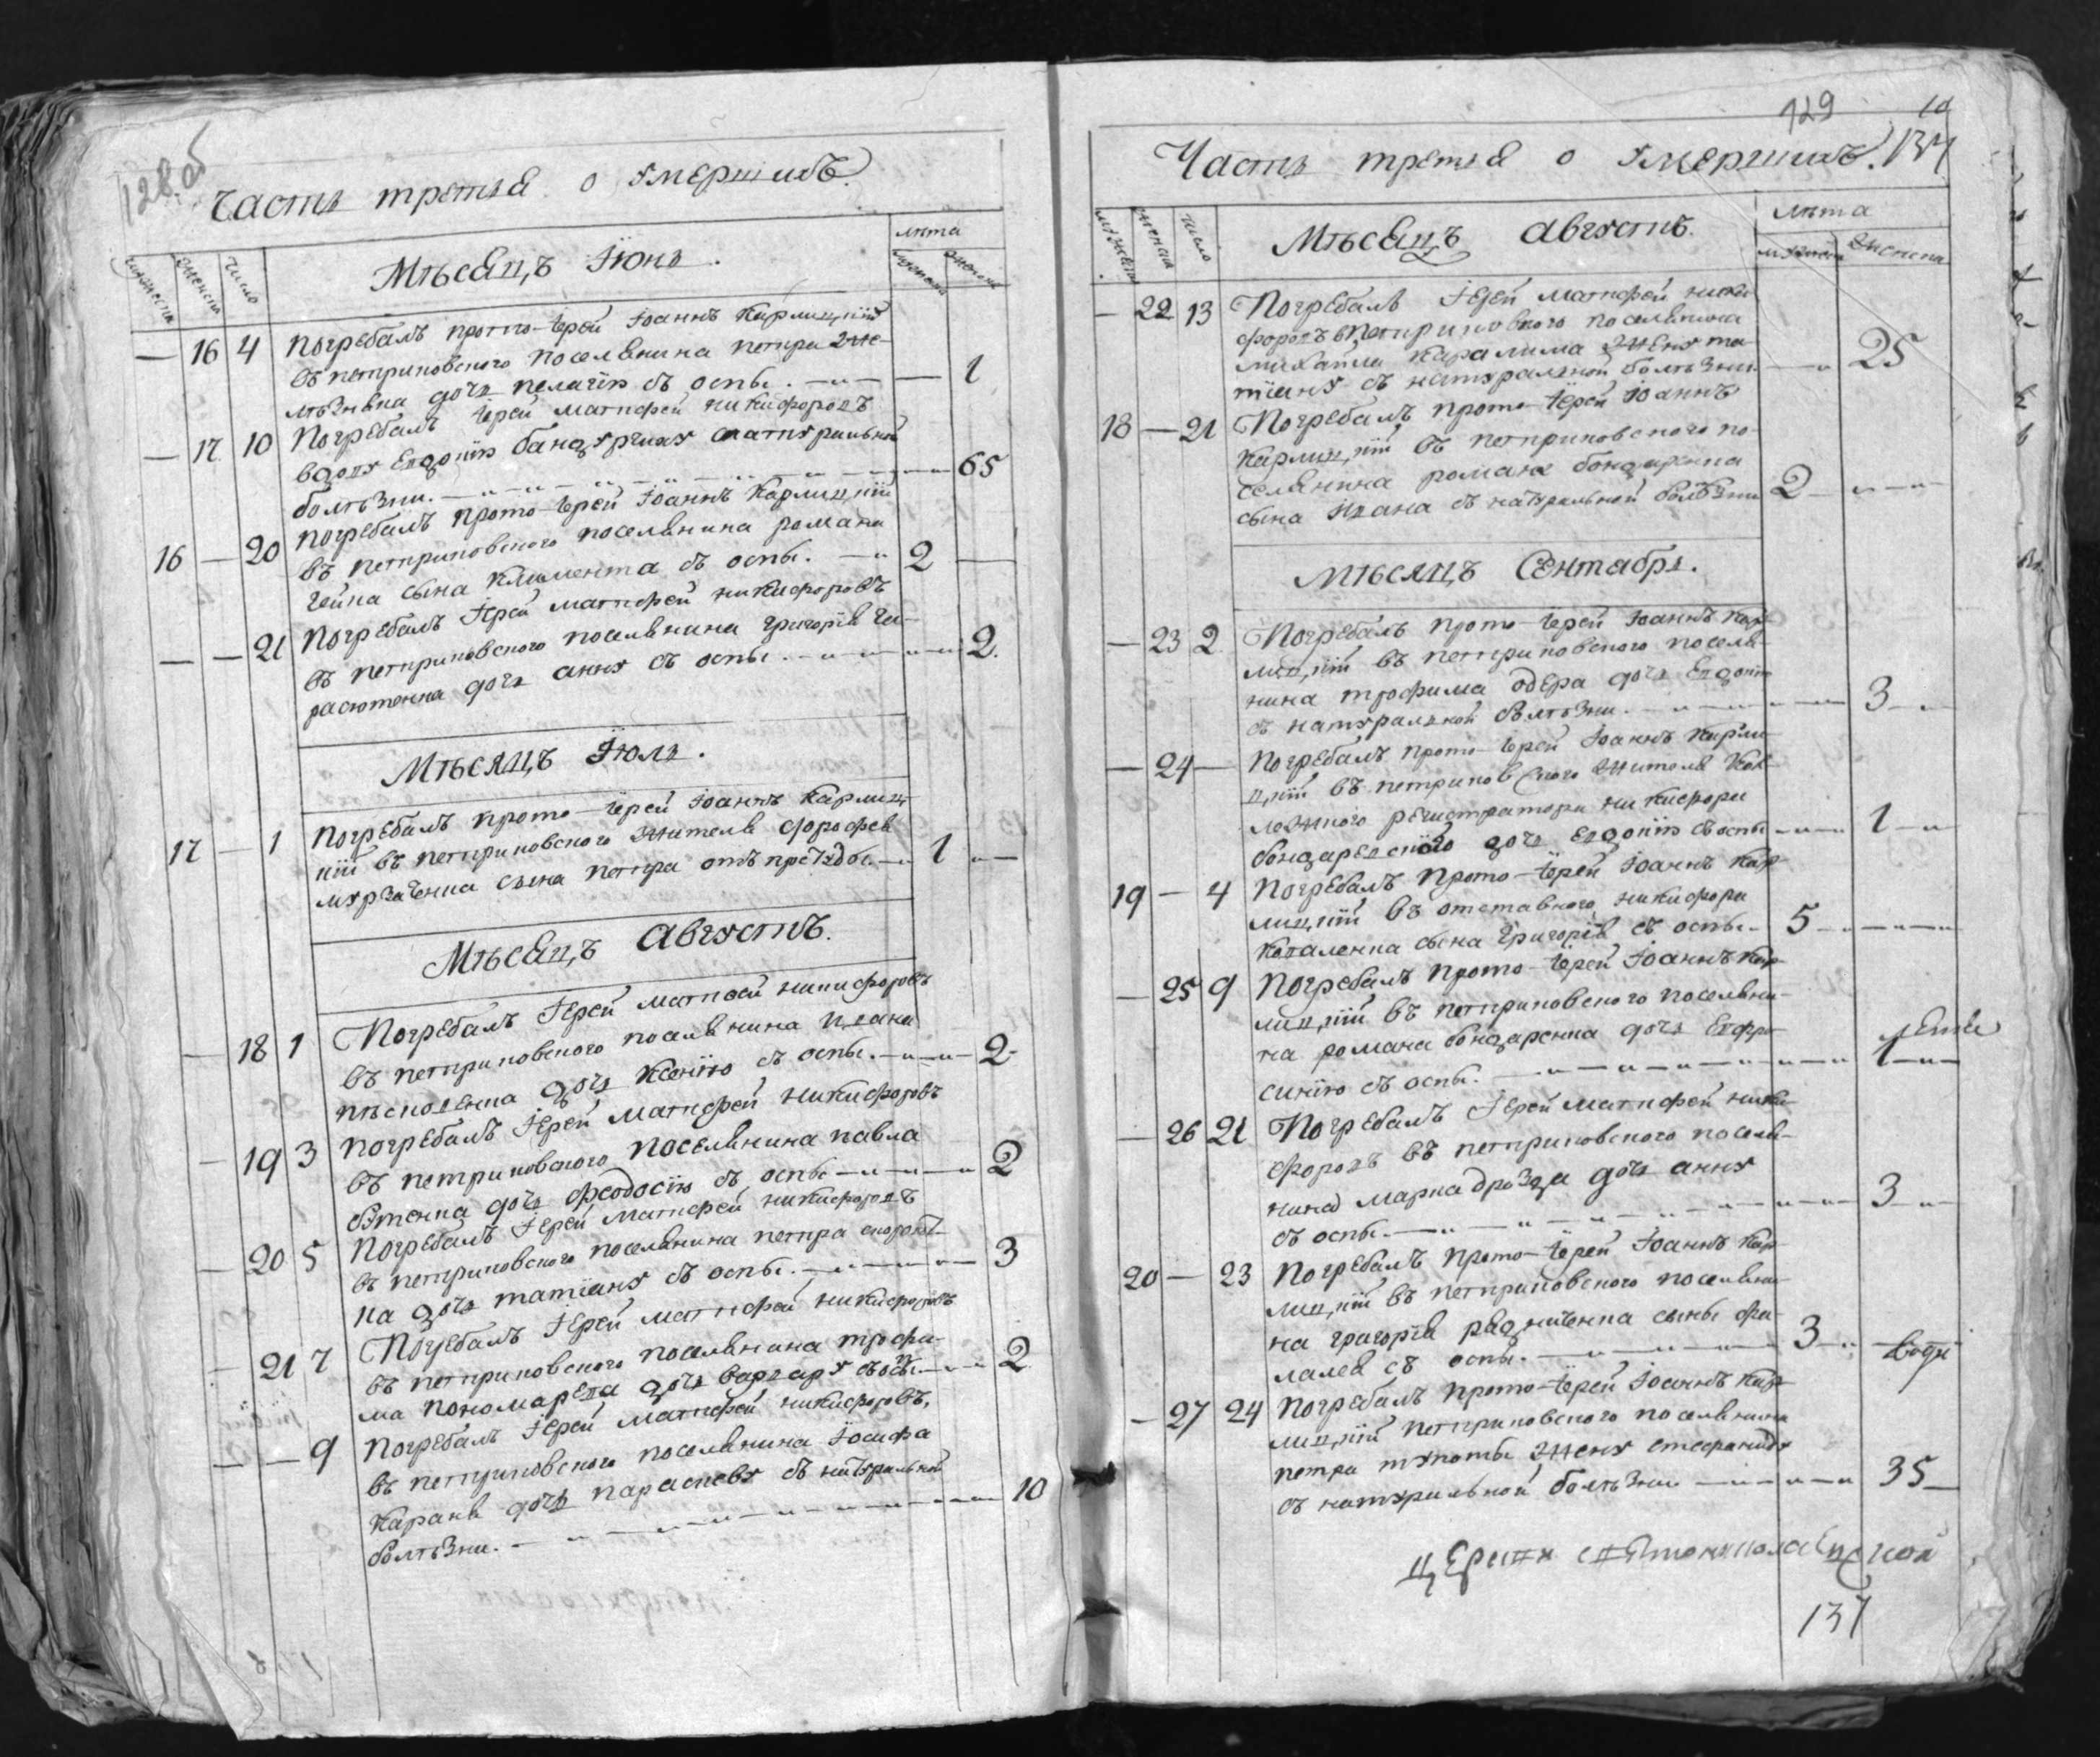 128 об
Часть третья о умершихъ.
мужеска женска число
Мѣсяцъ Іюнь.
лѣта
мужеска женска
— 16 4 Погребалъ прото-іерей Іоаннъ Карлицкій
въ петриковского поселянина петра
дочь пелагію съ оспы. — 1
— 17 10 Погребалъ іерей матфей никифоровъ
вдову Евдокію бандурчиху снатуральной
болѣзни. — 65
16 — 20 Погребалъ прото-іерей Іоаннъ Карлицкій
въ петриковского поселянина романа
сына климента съ оспы. — 2 —
— — 21 Погребалъ Іерей матфей никифоровъ
въ петриковского поселянина григорія
дочь анну съ оспы. — 2.
Мѣсяцъ Іюль.
17 — 1 Погребалъ прото-іерей Іоаннъ Карлиц
кій въ петриковского жителя
сына петра отъ — 1 —
Мѣсяцъ Августъ.
— 18 1 Погребалъ Іерей матфей никифоровъ
въ петриковского поселянина ивана
дочь ксенію съ оспы. — 2
— 19 3 Погребалъ Іерей матфей никифоровъ
въ петриковского поселянина павла
дочь феодосію съ оспы — 2
— 20 5 Погребалъ Іерей матфей никифоровъ
въ петриковского поселянина петра
ка дочь татіану съ оспы. — 3
— 21 7 Погребалъ Іерей матфей никифоровъ
въ петриковского поселянина трофи-
ма пономарева дочь варвару съ оспы. — 2
— — 9 Погребалъ Іерей матфей никифоровъ,
въ петриковского поселянина Іосифа
дочь параскеву съ натуральной
болѣзни. — 10
129 10
Часть третья о умершихъ. 137
мужеска женска число
Мѣсяцъ Августъ.
лѣта
мужеска женска
— 22 13 Погребалъ Іерей матфей ники
форовъ петриковского поселянина
михаила каралима жену та-
тіану съ натуральной болѣзни — 25
18 — 21 Погребалъ прото-іерей Іоаннъ
Карлицкій въ петриковского по-
селянина романа бондаренка
сына Ивана съ натуральной болѣзни 2 —
Мѣсяцъ Сентябрь.
— 23 2 Погребалъ прото-іерей Іоаннъ Кар-
лицкій въ петриковского поселя-
нина трофима дочь Евдокію
съ натуральной болѣзни. — 3 —
— 24 — Погребалъ прото-іерей Іоаннъ Карли
цкій въ петриковского жителя Кол-
лежного регистратора никифора
бондаревского дочь евдокію съ оспы — 1 —
19 — 4 Погребалъ прото-іерей Іоаннъ Кар-
лицкій въ отставного никифора
коваленка сына григорія съ оспы — 5 —
— 25 9 Погребалъ прото-іерей Іоаннъ Кар-
лицкій въ петриковского поселяни-
на романа бондаренка дочь Евфро
синію съ оспы. — 1 —
— 26 21 Погребалъ Іерей матфей ники-
форовъ въ петриковского поселя-
нина марка дрозда дочь анну
съ оспы. — 3 —
20 — 23 Погребалъ прото-іерей Іоаннъ Кар
лицкій въ петриковского поселяни-
на григорія сына фи
съ оспы. — 3 —
— 27 24 Погребалъ прото-іерей Іоаннъ Кар-
лицкій петриковского поселянина
петра жену стефаниду
съ натуральной болѣзни — 35 —
137